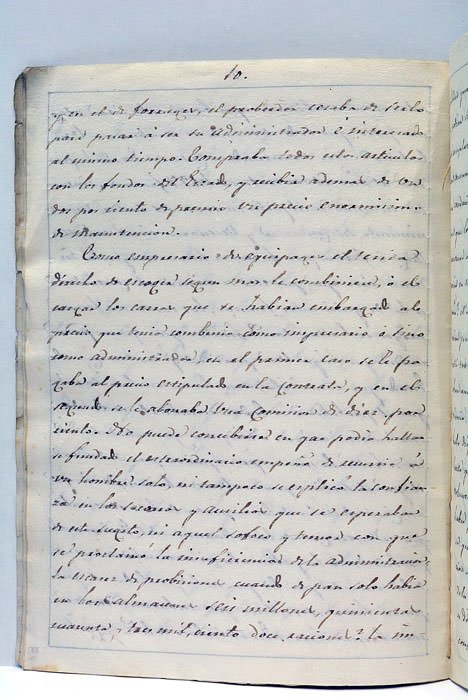 10.
y en el de forrages, el proveedor cesaba de serlo
para pasar á ser su administrador é interesado
al mismo tiempo. Compraba todos estos articulos
con los fondos del Estado, y recibia ademas de
dos por ciento de premio un precio enormisimo
de manutencion.
Como empresario de equipages el tenia
derecho de escoger segun mas le combiniese, ó el
cargar los carros que se habian embargado al
precio que tenia combenido como impresario ó sino
como administrador en el primer caso se le pa
gaba al precio estipulado en la contrata, y en el
segundo se le abonaba una comision de diez por
ciento. No puede concebirse en que podia hallar
se fundado el extraordinario empeño de reunir á
un hombre solo, ni tampoco se esplica la confian
za en los socorros y auxilios que se esperaban
de este sugeto, ni aquel sofoco y temor con que
se proclamó la insuficiencia de la administracion,
la escasez de probisiones cuando de pan solo habia
en los almacenes seis millones, quinientas
cuarenta y tres mil, ciento doce raciones? la in-